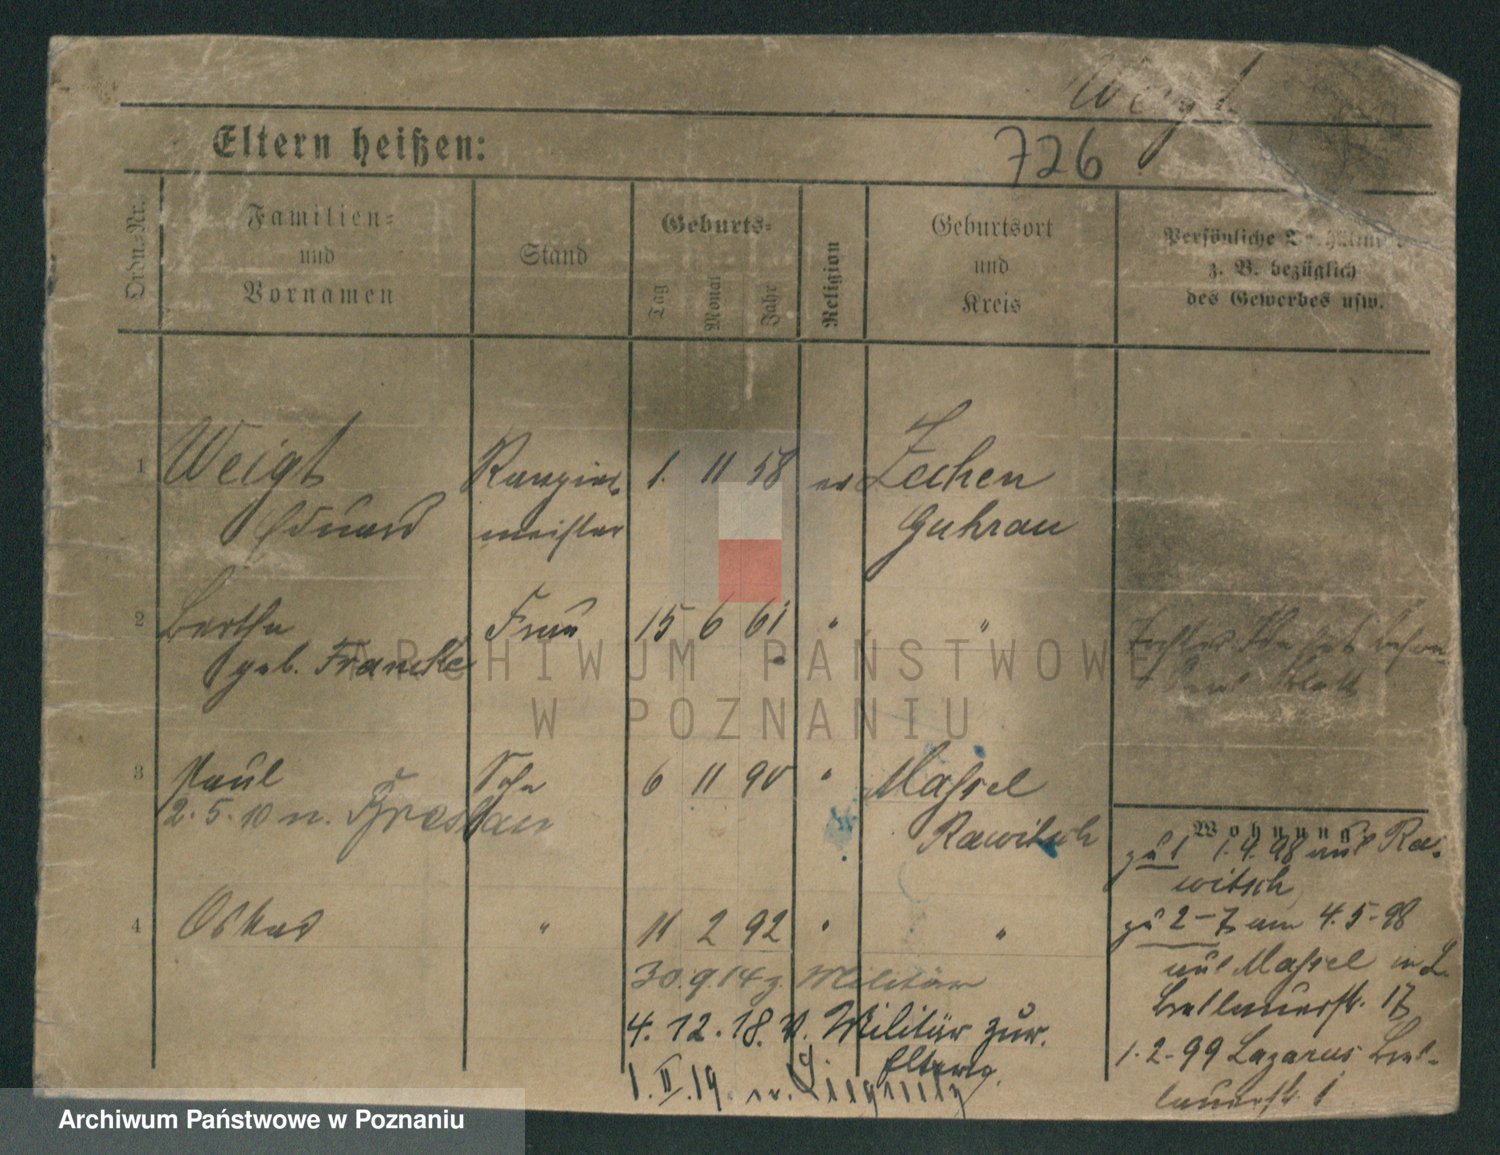 Weigt
Eltern heißen:
726
Ordn.Nr.
Familien-
und
Vornamen
Stand
Geburts-
Tag
Monat
Jahr
Religion
Geburtsort
und
Kreis
Persönliche
z. B. bezüglich
des Gewerbes usw.
1 Weigt Rangier- 1. 11 58 ev Zechen
Eduard meister Guhrau
2 Bertha Frau 15 6 61 " "
geb. Francke
3 Paul Sohn 6 11 90 " Massel
2.5.10 n. Breslau Rawitsch
4 Oskar " 11 2 92 " "
30.9.14 z. Militär
4.12.18. v. Militär zur.
Elterng.
1.II.19. n. Liegnitz
Wohnung
zu 1 1.4.98 aus Ra-
witsch
zu 2-7 am 4.5.98
aus Massel in L.
17
1.2.99 Lazarus
1
ARCHIWUM PAŃSTWOWE
W POZNANIU
Archiwum Państwowe w Poznaniu